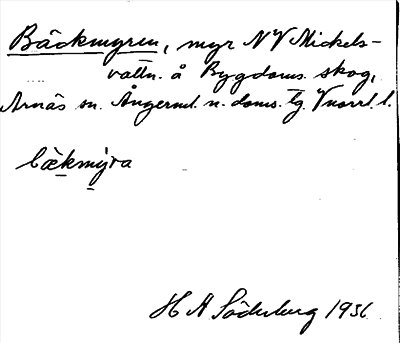 Bäckmyren, myr NV Mickels-
vattn. å Bygdoms. skog,
Arnäs sn. Ångerml. n. doms. tg. Vnorrl. l.
bækmyra
H A Söderberg 1936